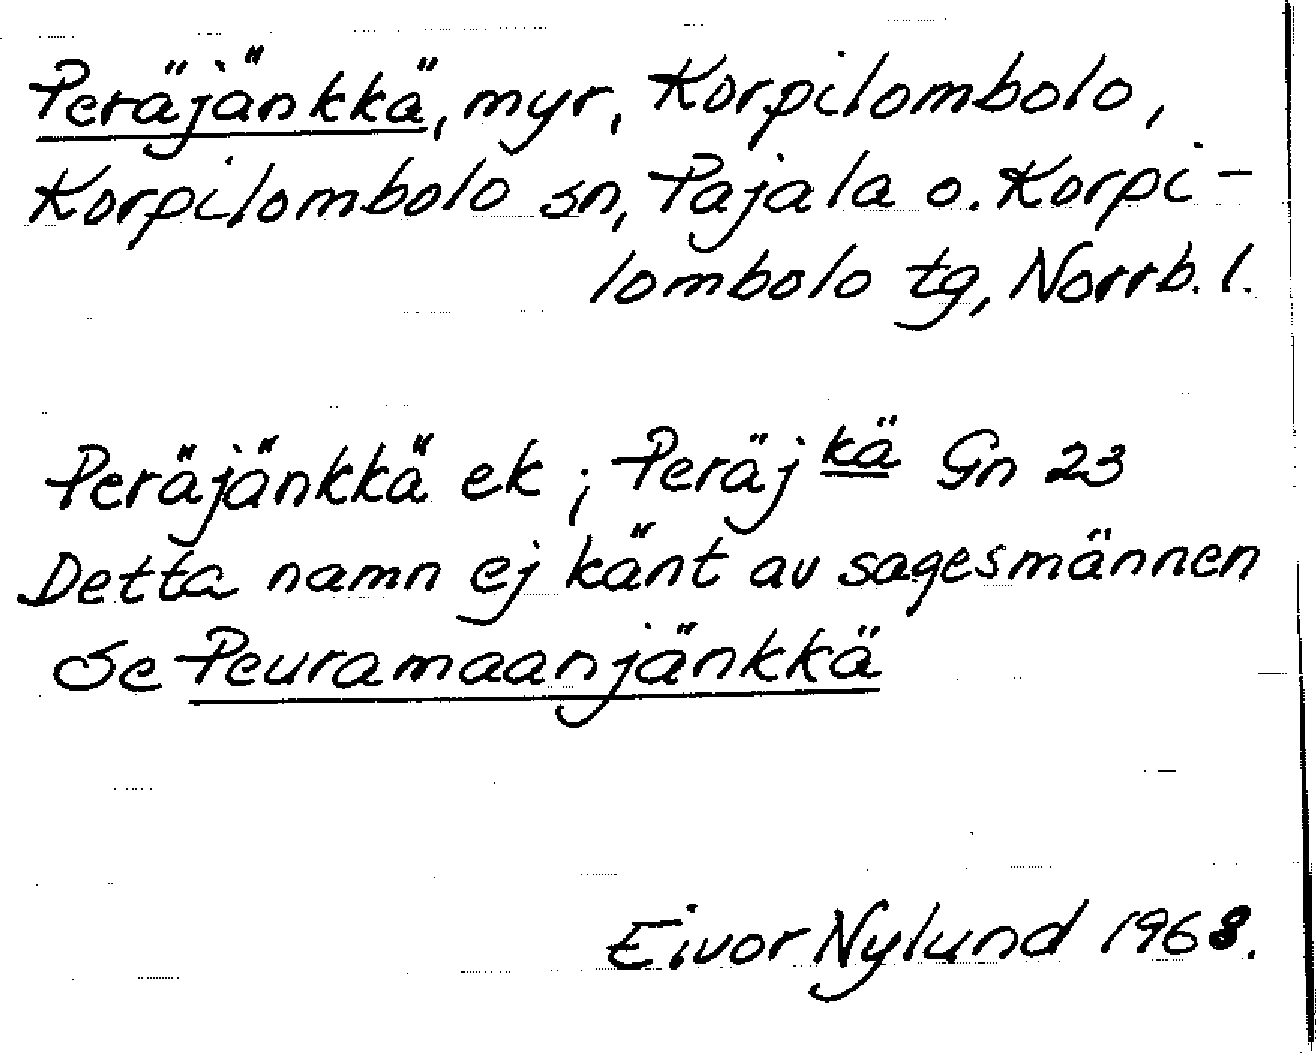 Peräjänkkä, myr, Korpilombolo,
Korpilombolo sn, Pajala o. Korpi-
lombolo tg, Norrb. l.
Peräjänkkä ek ; Peräj kä Gn 23
Detta namn ej känt av sagesmännen
Se Peuramaanjänkkä
Eivor Nylund 1968.